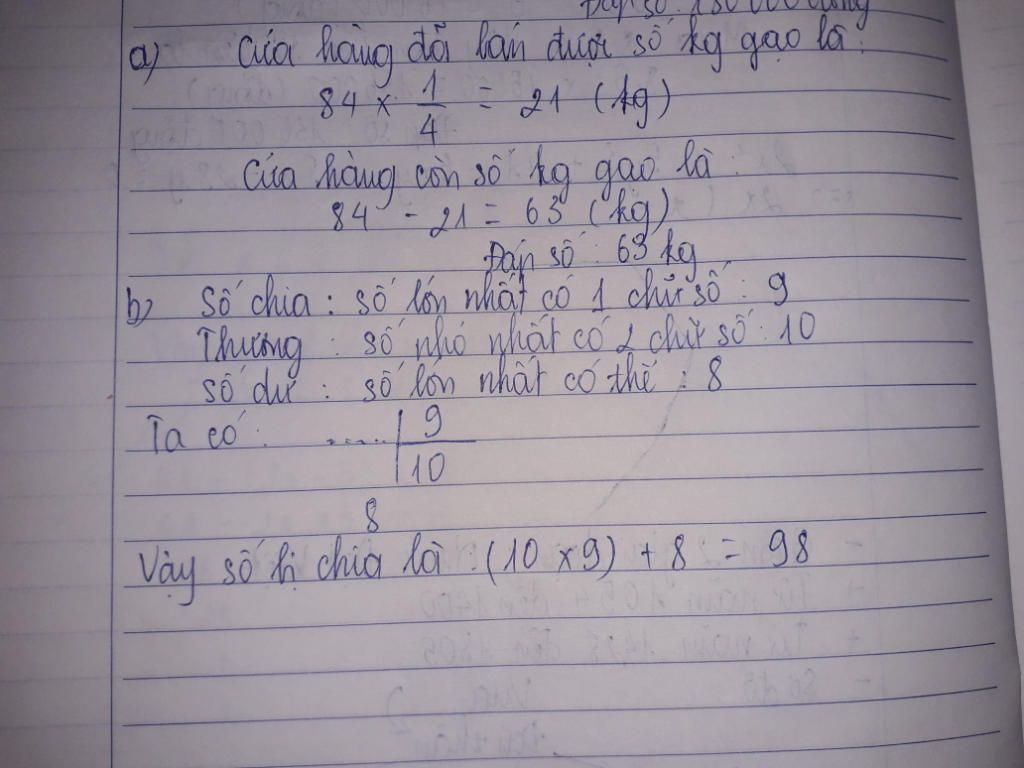 Đáp số: 130 000 đồng
a) Cửa hàng đã bán được số kg gạo là:
84 × 1/4 = 21 (kg)
Cửa hàng còn số kg gạo là:
84 - 21 = 63 (kg)
Đáp số: 63 kg
b) Số chia: số lớn nhất có 1 chữ số: 9
Thương: số nhỏ nhất có 2 chữ số: 10
Số dư: số lớn nhất có thể: 8
Ta có: ..... 9
10
8
Vậy số bị chia là: (10 × 9) + 8 = 98